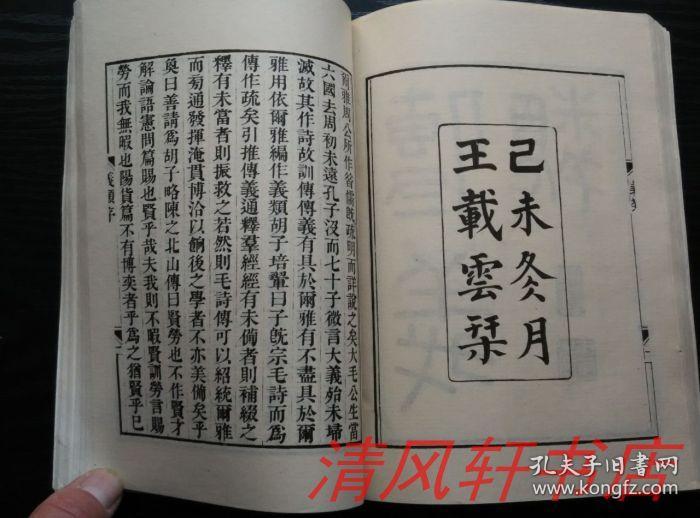 己未冬月
王載雲栞
爾雅周公所作眘儒旣疏明而詳說之矣大毛公生當
六國去周初未遠孔子沒而七十子微言大義殆未埽
滅故其作詩故訓傳傳義有具於爾雅有不盡具於爾
雅用依爾雅編作義類胡子培翬曰子旣宗毛詩而爲
傳作疏矣引推傳義通釋羣經經有未備者則補綴之
釋有未當者則振救之若然則毛詩傳可以紹統爾雅
而旁通發揮淹貫博洽以餉後之學者不亦美備矣乎
奐曰善請爲胡子略陳之北山傳曰賢勞也不作賢才
解論語憲問篇賜也賢乎哉夫我則不暇賢訓勞言賜
勞而我無暇也陽貨篇不有博奕者乎爲之猶賢乎已
義類序
清风轩书店
孔夫子旧书网
www.kongfz.com